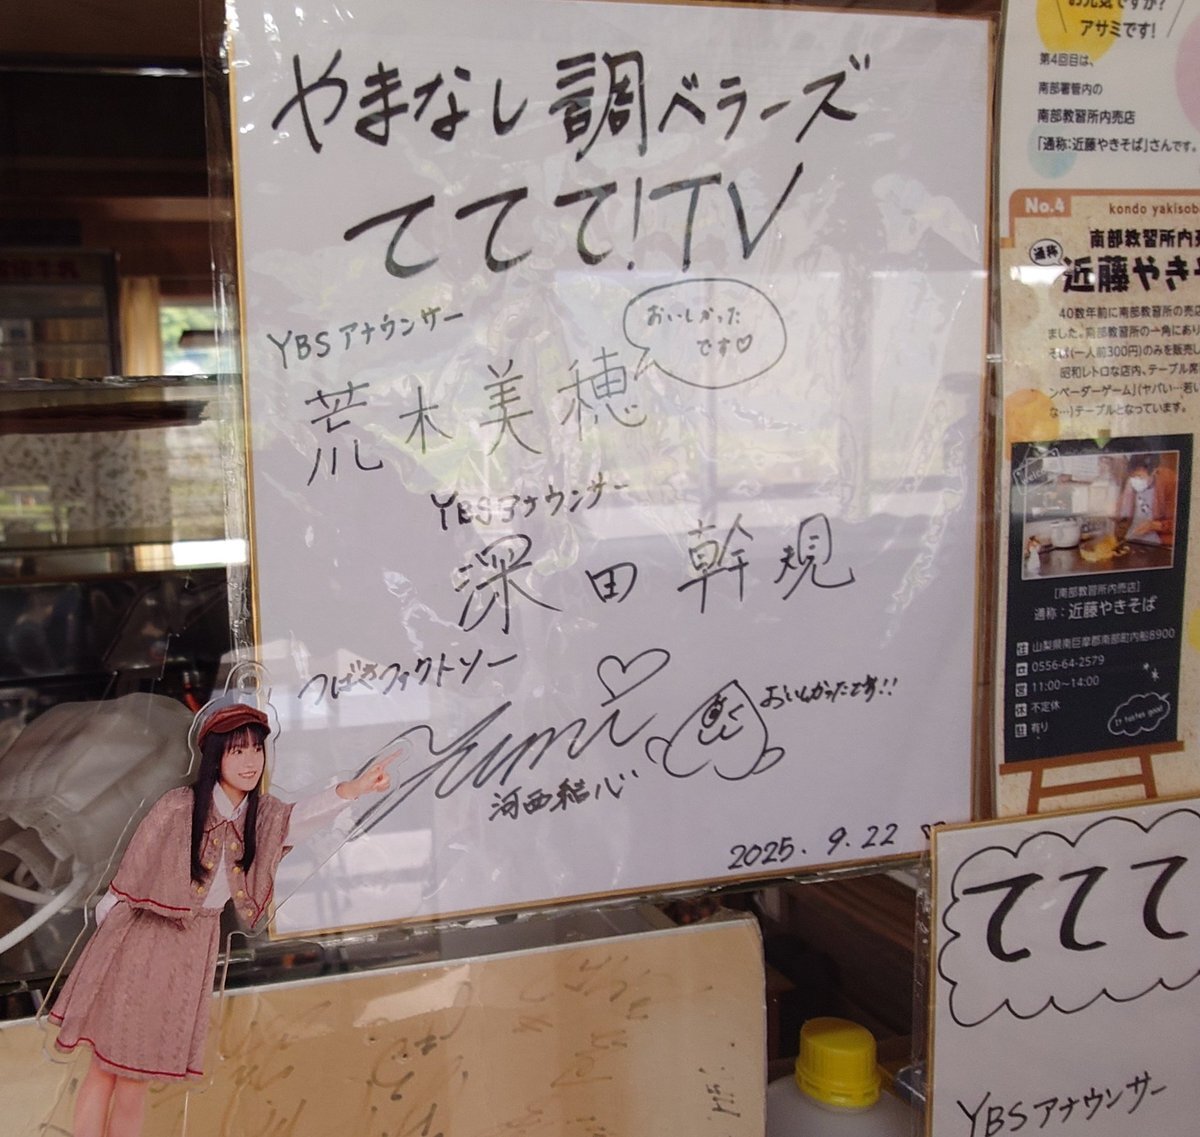 やまなし調べラーズ
ててて!TV
YBSアナウンサー
荒木美穂
おいしかった
です♡
YBSアナウンサー
深田幹規
つばきファクトリー
yumi♡
河西結心
おいしかったです!!
2025.9.22
お元気ですか?
アサミです!
第4回目は、
南部署管内の
南部教習所内売店
「通称:近藤やきそば」さんです。
No.4
kondo yakisob
南部教習所内売
通称
近藤やき
40数年前に南部教習所の売店
ました。南部教習所の一角にあり
そば(一人前300円)のみを販売し
昭和レトロな店内、テーブル席
ンベーダーゲーム」(ヤバい…若い
な…)テーブルとなっています。
[南部教習所内売店]
通称:近藤やきそば
住 山梨県南巨摩郡南部町内船8900
0556-64-2579
営 11:00~14:00
休 不定休
駐 有り
It tastes good!
ててて
YBSアナウンサー